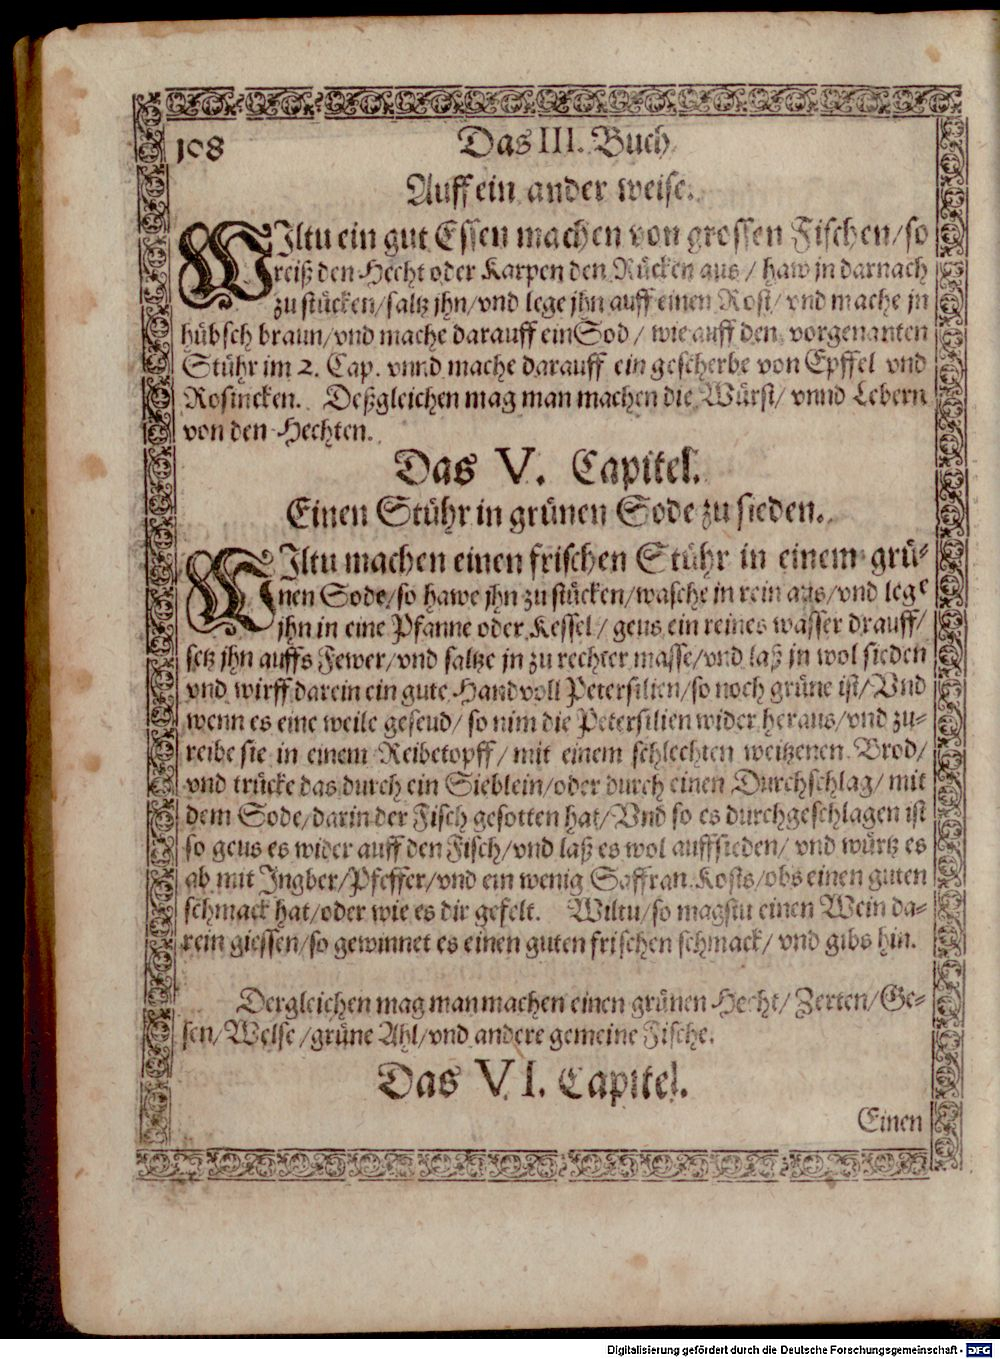 108
Das III. Buch
Auff ein ander weise.
WIltu ein gut Essen machen von grossen Fischen/ so
reiß den Hecht oder Karpen den Rücken aus/ haw jn darnach
zu stücken/ saltz jhn/ vnd lege jhn auff einen Rost/ vnd mache jn
hübsch braun/ vnd mache darauff ein Sod/ wie auff den vorgenanten
Stühr im 2. Cap. vnnd mache darauff ein gescherbe von Epffel vnd
Rosincken. Deßgleichen mag man machen die Würst/ vnnd Lebern
von den Hechten.
Das V. Capitel.
Einen Stühr in grünen Sode zu sieden.
WIltu machen einen frischen Stühr in einem grü-
nen Sode/ so hawe jhn zu stücken/ wasche in rein aus/ vnd lege
jhn in eine Pfanne oder Kessel/ geus ein reines wasser drauff/
setz jhn auffs Fewer/ vnd saltze jn zu rechter masse/ vnd laß jn wol sieden
vnd wirff darein ein gute Handvoll Petersilien/ so noch grüne ist/ Vnd
wenn es eine weile geseud/ so nim die Petersilien wider heraus/ vnd zu-
reibe sie in einem Reibetopff/ mit einem schlechten weitzenen Brod/
vnd trücke das durch ein Sieblein/ oder durch einen Durchschlag/ mit
dem Sode/ darin der Fisch gesotten hat/ Vnd so es durchgeschlagen ist
so geus es wider auff den Fisch/ vnd laß es wol auffsieden/ vnd würtz es
ab mit Ingber/ Pfeffer/ vnd ein wenig Saffran. Kosts/ obs einen guten
schmack hat/ oder wie es dir gefelt. Wiltu/ so magstu einen Wein da-
rein giessen/ so gewinnet es einen guten frischen schmack/ vnd gibs hin.
Dergleichen mag man machen einen grünen Hecht/ Zerten/ Ge-
sen/ Welse/ grüne Ahl/ vnd andere gemeine Fische.
Das VI. Capitel.
Einen
Digitalisierung gefördert durch die Deutsche Forschungsgemeinschaft - DFG